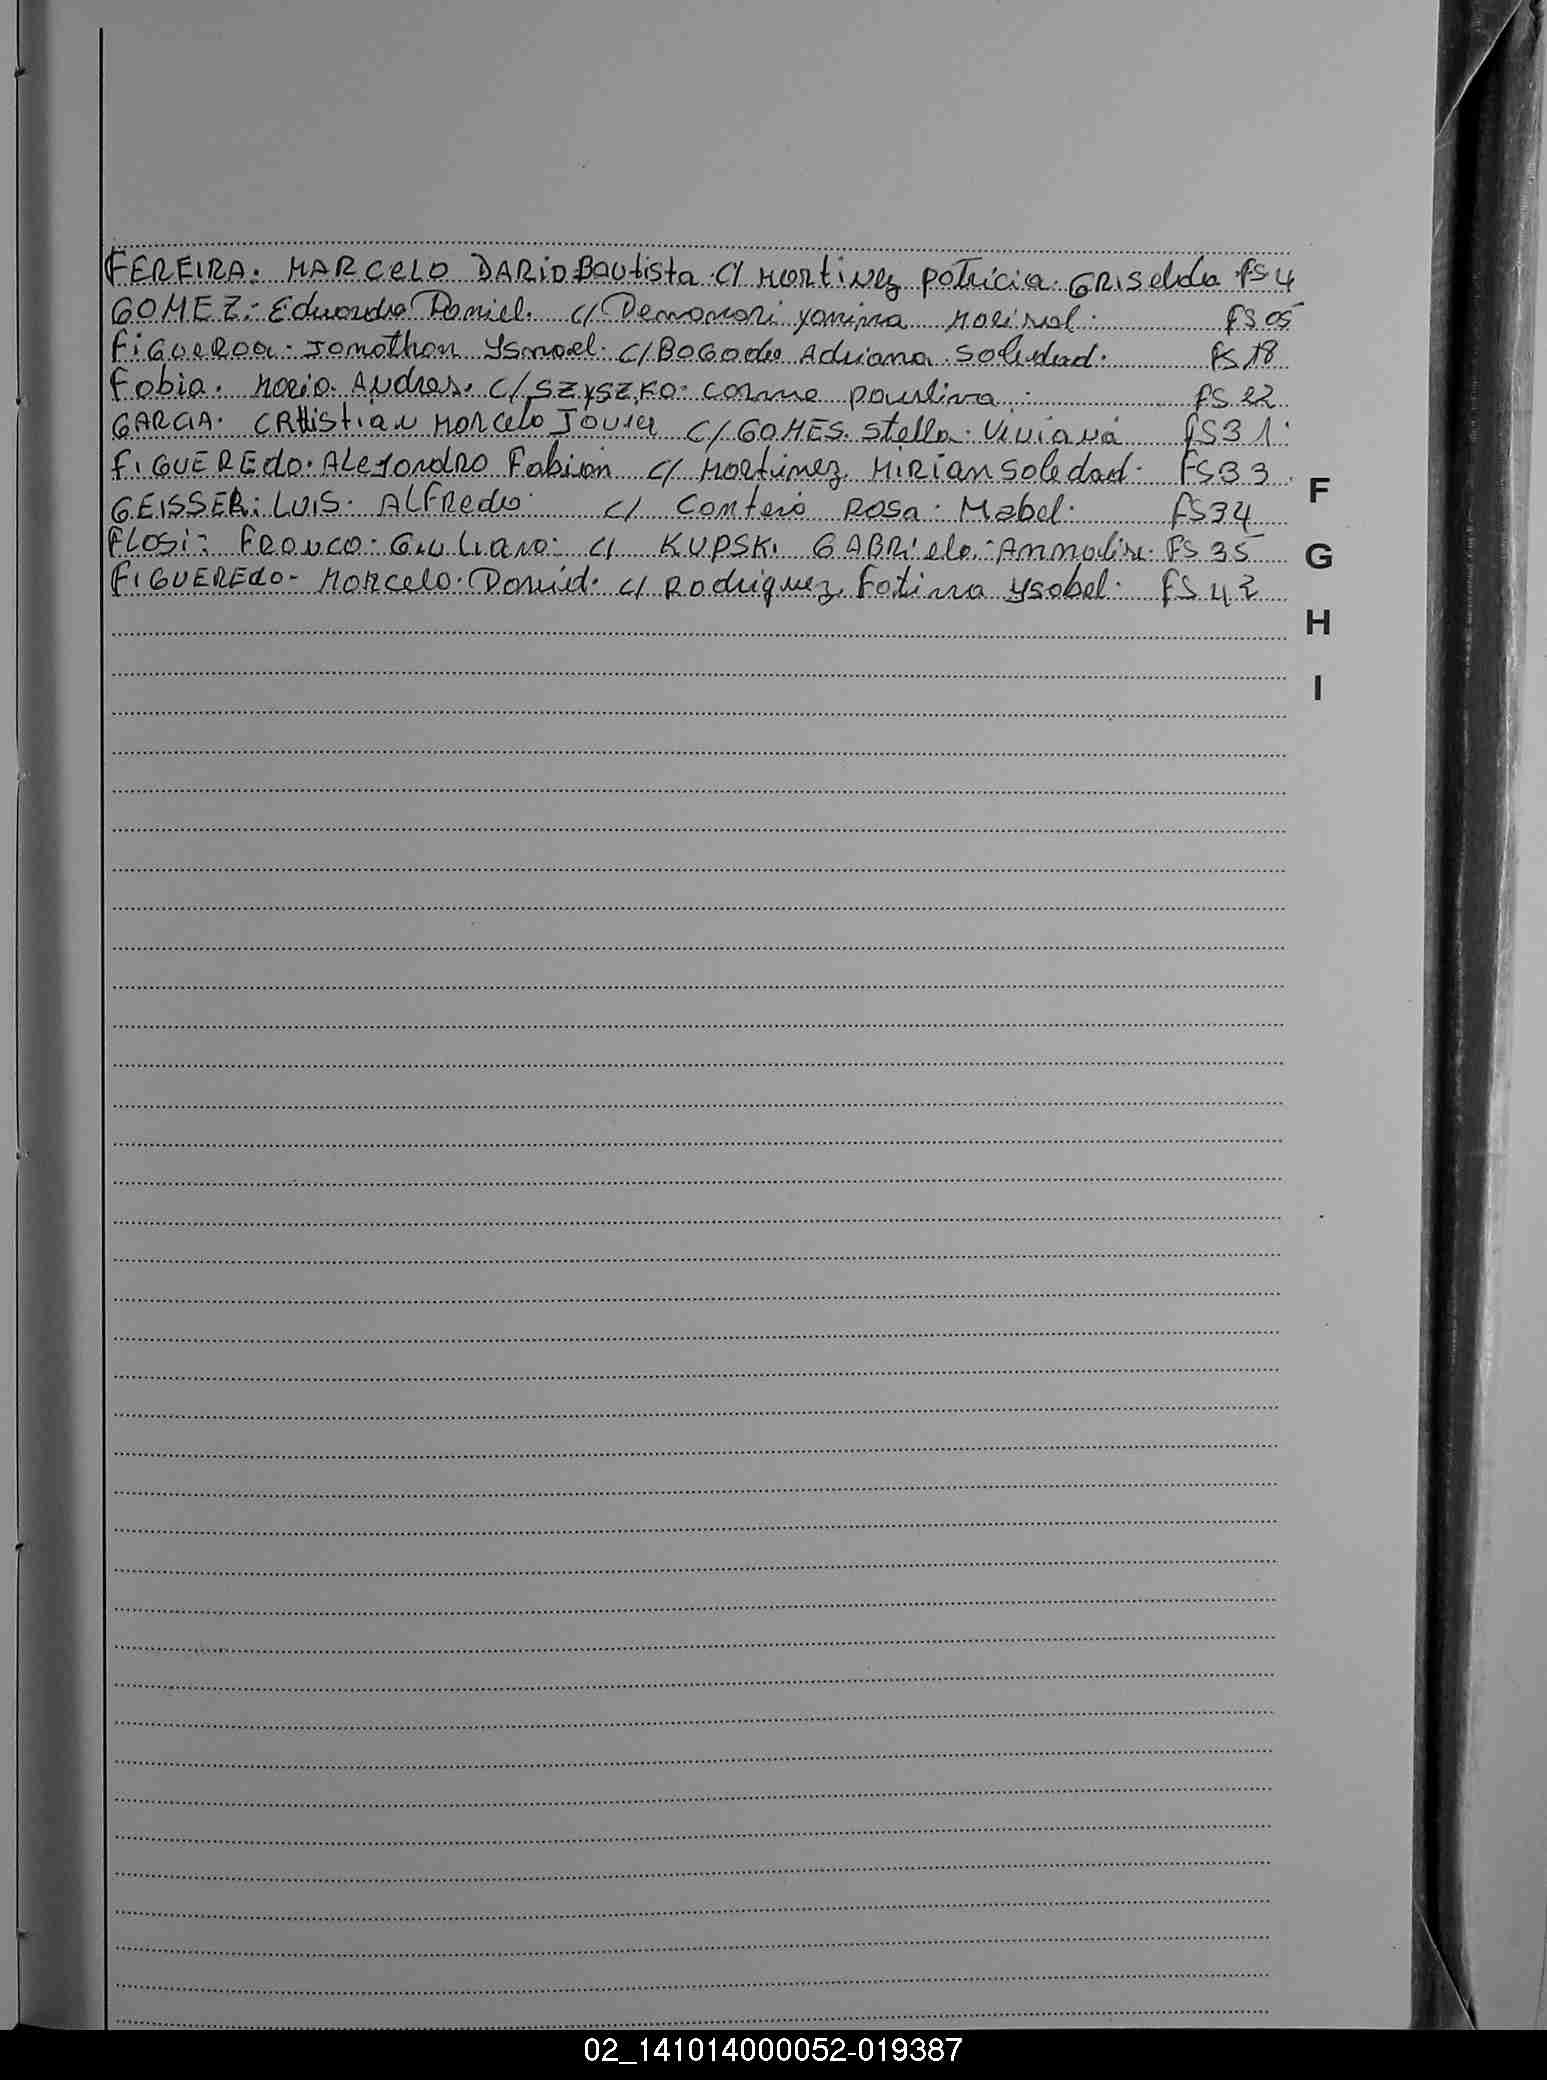 FEREIRA. MARCELO DARIO Bautista C/ Martinez Patricia. GRISelda FS 4
GOMEZ: Eduardo Daniel. C/ Demonari yanina Marisol. FS 05
FiGUeROa. Jonathan Ysmael. C/ BOGado Adriana Soledad. FS 18
Fabia. Mario Andres. C/ SZYSZKO. Paulina. FS 22
GARCIA. CRHistian Marcelo Javier C/ GOMES. Stella. Viviana FS 31
FIGUEREdo. ALeJandRO Fabian C/ Martinez MIRIAN Soledad. FS 33
F
GEISSER: LUIS. ALFRedo C/ Conterio ROSA. Mabel. FS 34
FLOSI: FRANCO. GiuLiano. C/ KUPSKI GABRiela. Annalise. FS 35
G
FIGUEREdo- Marcelo. Daniel. C/ Rodriguez Fatima Ysabel. FS 42
H
I
02_141014000052-019387